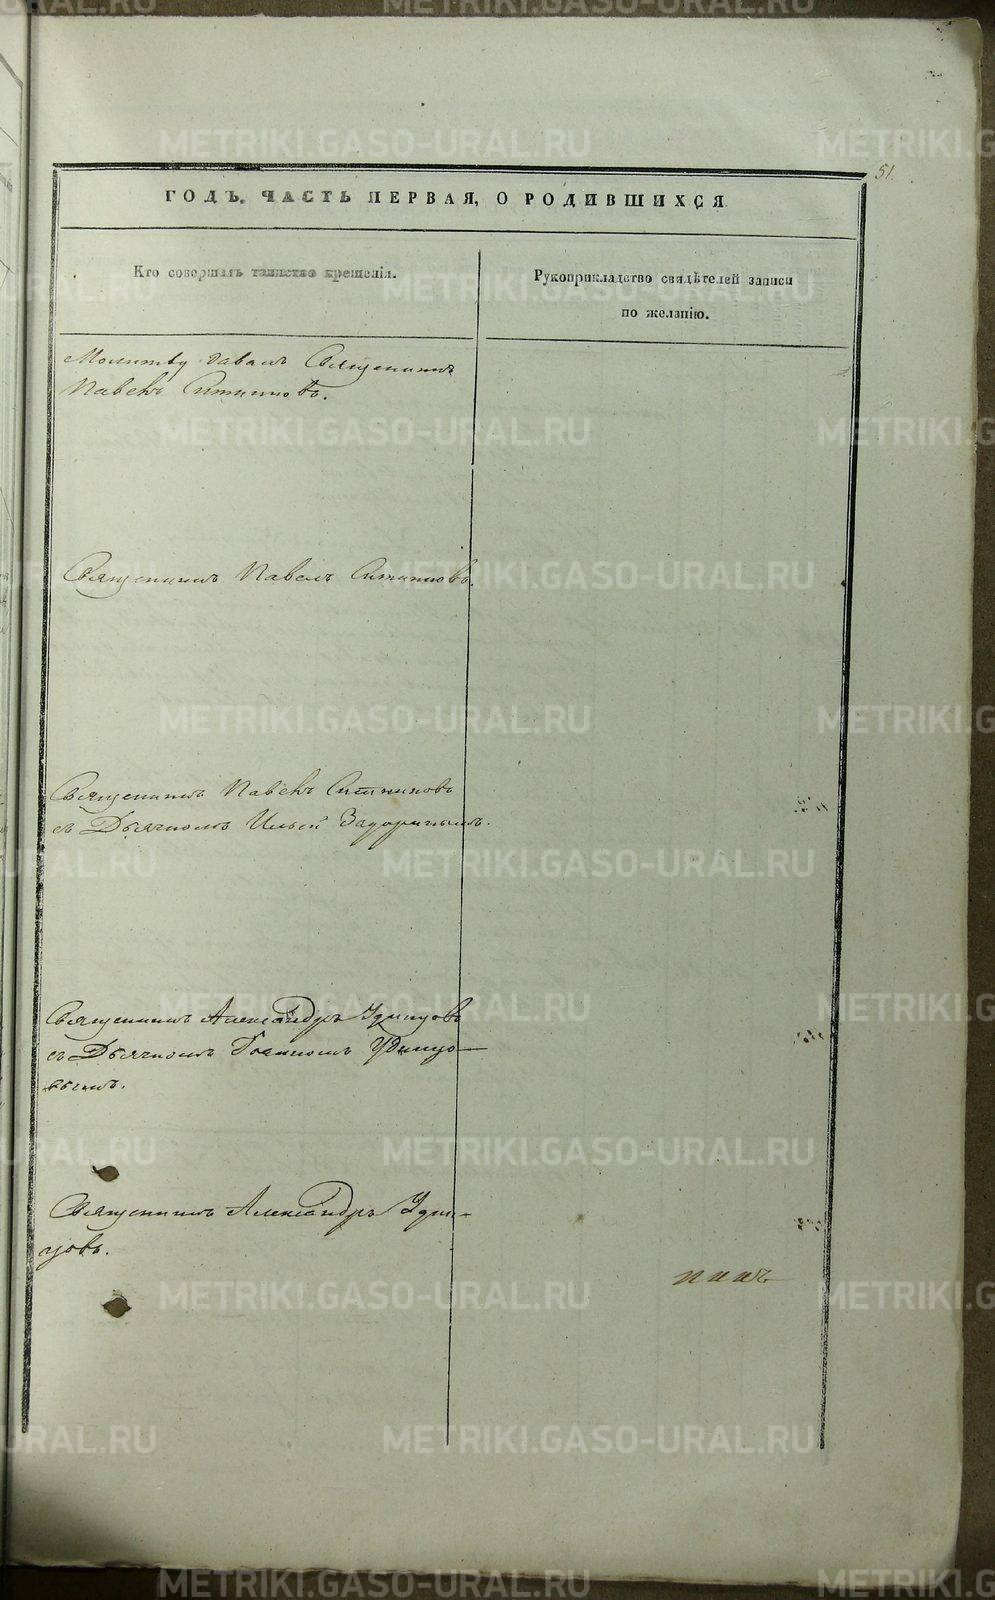 METRIKI.GASO-URAL.RU
51.
ГОДЪ. ЧАСТЬ ПЕРВАЯ, О РОДИВШИХСЯ
Кто совершалъ таинство крещенія.
Рукоприкладство свидѣтелей записи
по желанію.
Молитву давалъ Священникъ
Павелъ
Священникъ Павелъ
Священникъ Павелъ
съ Дьячкомъ Ильей Задоринымъ.
Священникъ Александръ Удинцовъ
съ Дьячкомъ Удинцо-
вымъ.
Священникъ Александръ Удин-
цовъ.